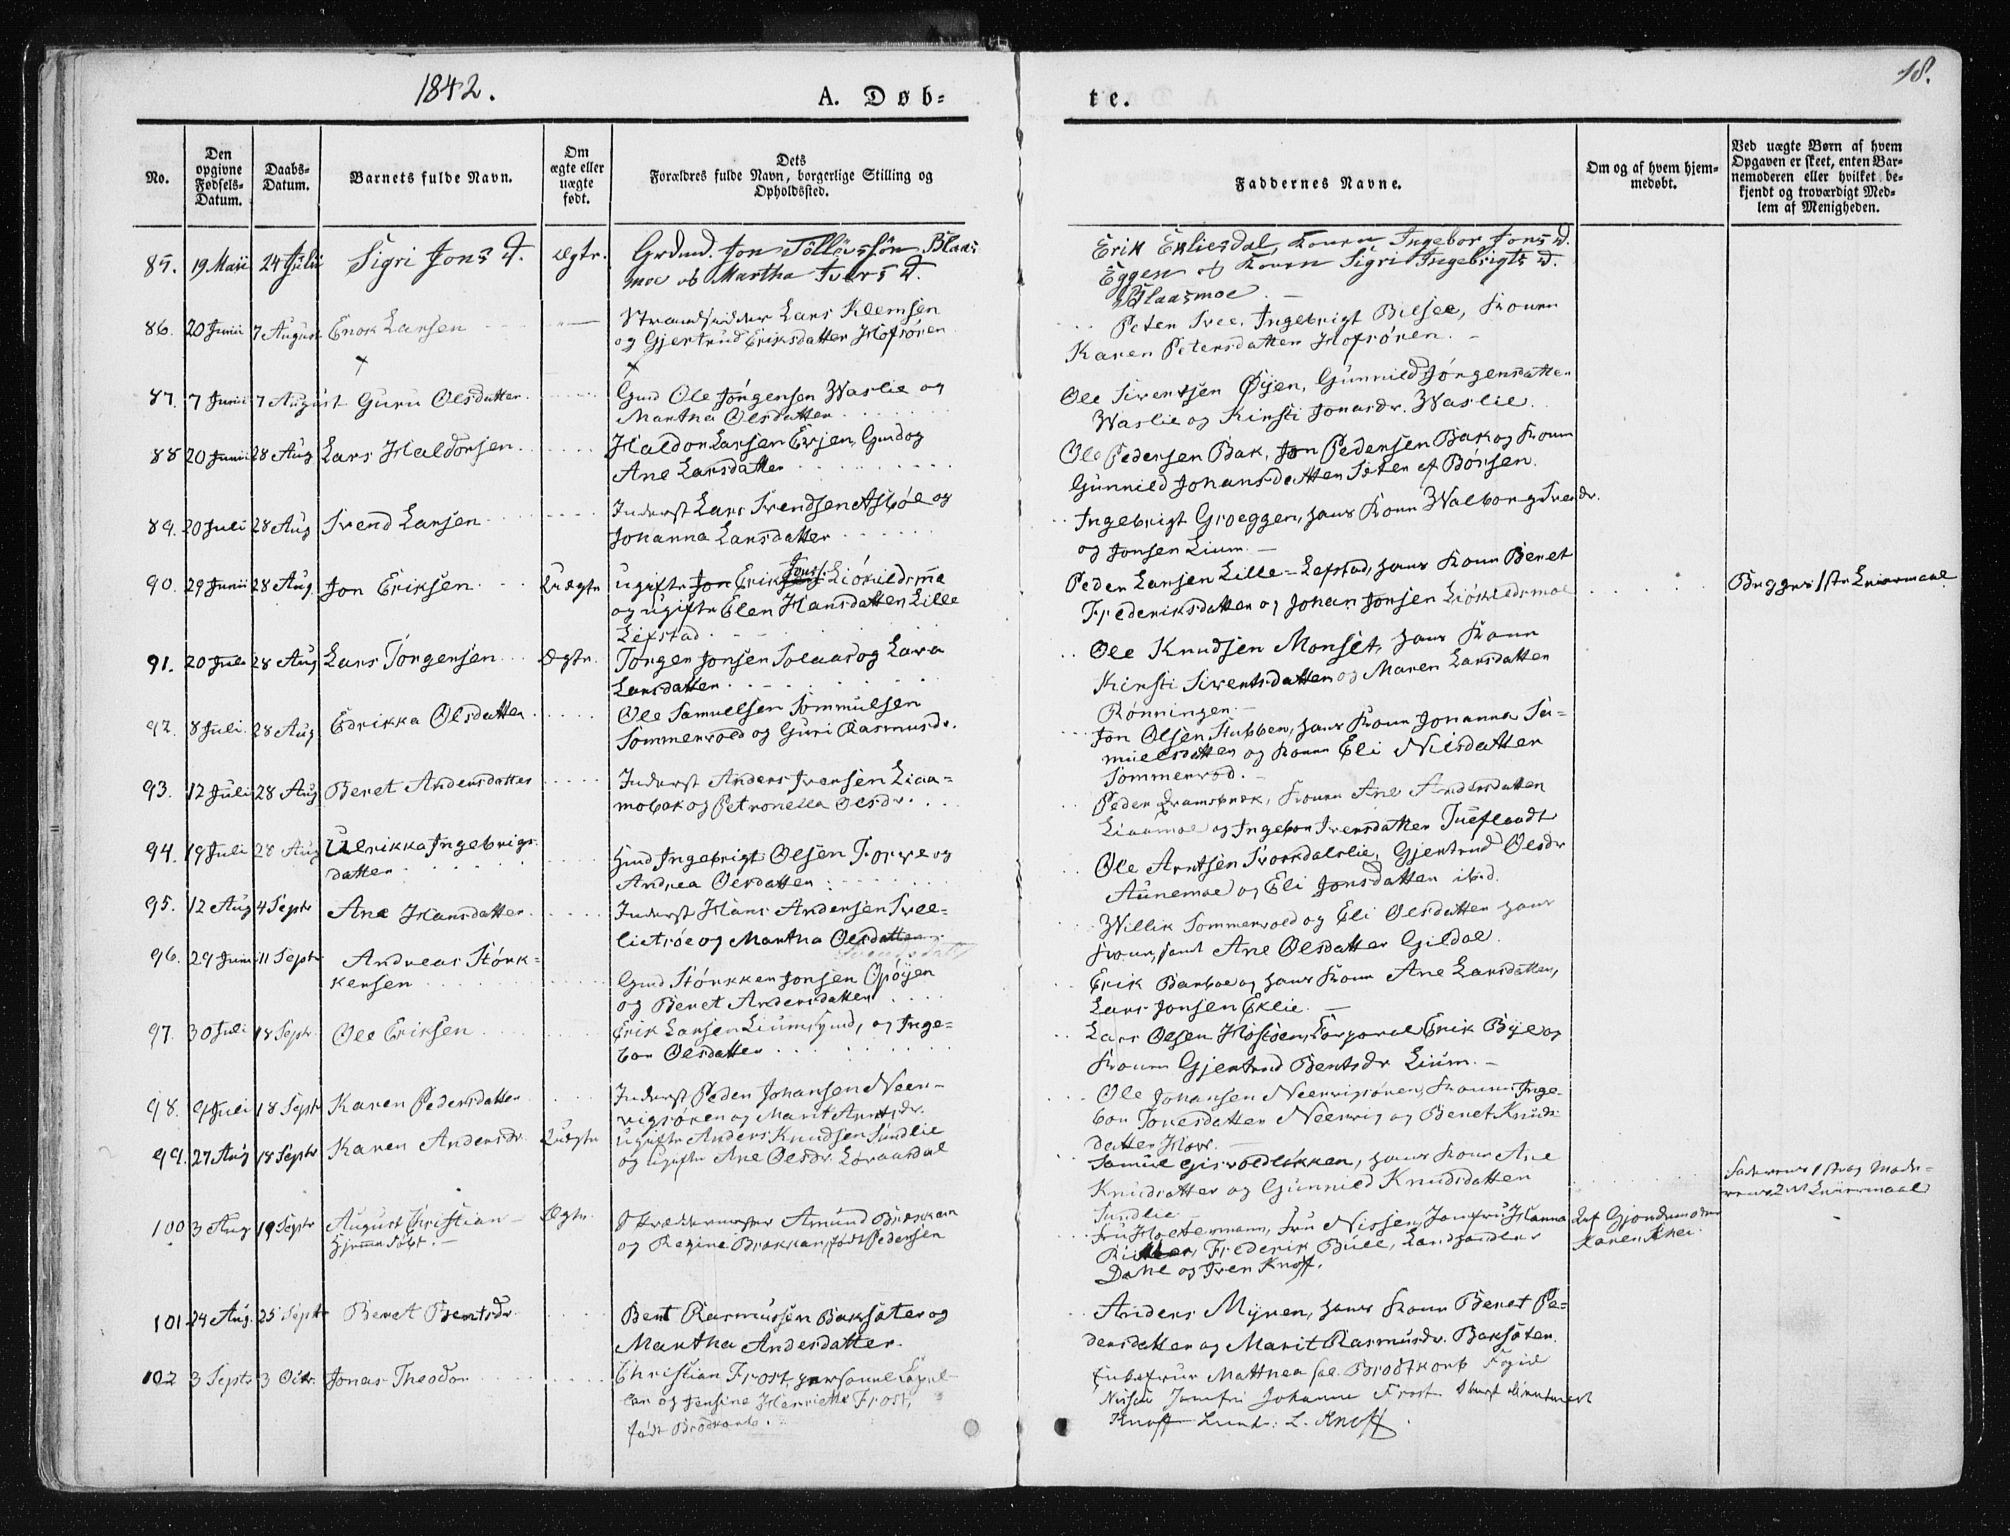 1842.
A. Døb-
te.
18.
No.
Den opgivne Fødsels-Datum.
Daabs-Datum.
Barnets fulde Navn.
Om ægte eller uægte født.
Dets Forældres fulde Navn, borgerlige Stilling og Opholdssted.
Faddernes Navne.
Om og af hvem hjem-medøbt.
Ved uægte Børn af hvem Opgaven er skeet, enten Bar-nemoderen eller hvilket be-kjendt og troværdigt Med-lem af Menigheden.
85. 19 Maii 24 Julii Sigri Jons D. Ægte. Grdmd. Jon Tølløvssøn Blaas
moe ob Martha Ivers D.
Erik Ekliesdal, Konen Ingebor Jons D.
Eggen ob Konen Sigri Ingebrigts D.
Blaasmoe.
86. 20 Junii 7 August Enok Larsen
Strandsidder Lars Klemsen
og Gjertrud Eriksdatter Hofsøren
Peter Svee, Ingebrigt Bilsee, Konen
Karen Petersdatter Hofsøren.
87. 7 Junii 7 August Guru Olsdatter.
Gmd Ole Jørgensen Waslie og
Martha Olsdatter
Ole Siventsen Øyen, Gunnild Jørgensdatter
Waslie og Kirsti Jonasdr. Waslie.
88 20 Junii 28 Aug Lars Haldorsen.
Haldor Larsen Evjen, Gmd og
Ane Larsdatter
Ole Pedersen Bak, Jon Pedersen Bak og Konen
Gunnild Johansdatter Seter af Børsen.
89. 20 Juli 28 Aug Svend Larsen
Inderst Lars Svendsen Asbøl og
Johanna Larsdatter
Ingebrigt Groeggen, hans Kone Walborg Svendr.
og Jonsen Lium.
90. 29 Junii 28 Aug. Jon Eriksen. Uægte
ugifte Jon Erik Jons. Liøkildsmoe
og ugifte Elen Hansdatter Lille
Lefstad
Peder Larsen Lille-Lefstad, hans Kone Beret
Frederiksdatter og Johan Jonsen Liøkildsmoe
Begges 1ste Leiermaal
91. 20 Juli 28 Aug Lars Jørgensen Ægte.
Jørgen Jonsen Solaas og Lava
Larsdatter
Ole Knudsen Monset, hans Kone
Kirsti Siventsdatter og Maren Larsdatter
Rønningen.
92. 8 Juli. 28 Aug Edrikka Olsdatter
Ole Samuelsen Sommulsen
Sommervold og Guri Rasmusdr.
Jon Olsen Stubben, hans Kone Johanna Sa-
muelsdatter og Konen Eli Nilsdatter
Sommervod.
93. 12 Juli 28 Aug Beret Andersdatter
Inderst Anders Iversen Liaa-
mobak og Petronella Olsdr.
Peder Framsbrek, Konen Ane Andersdatter
Liaamoe og Ingebor Iversdatter Tufladt
94. 19 Juli 28 Aug Ulrikka Ingebrigs.
datter
Gmd Ingebrigt Olsen Forve og
Andrea Olsdatter
Ole Arntsen Svorkdalslie, Gjertrud Olsdr
Aunemoe og Eli Jonsdatter ibid.
95. 12 Aug 4 Septr Ane Hansdatter
Inderst Hans Andersen Svee-
lietrøe og Martha Olsdatter
Willik Sommervold og Eli Olsdatter hans
Kone, samt Ane Olsdatter Gildal.
96. 29 Juni 11 Septr Andreas Størk-
kersen
Gmd Størkker Jonsen Opøyen
og Beret Andersdatter
Erik Barboe og hans Kone Ane Larsdatter,
Lars Jonsen Eklie.
97. 30 Juli 18 Septr Ole Eriksen
Erik Larsen Lium, Gmd, og Inge-
bor Olsdatter
Lars Olsen Hostoen, Corporal Erik Bye og
Konen Gjertrud Bentsdr Lium.
98. 9 Juli 18 Septr Karen Pedersdatter
Inderst Peder Johansen Neer-
vigsøren og Marit Arntsdr.
Ole Johansen Neervigsøren, Konen Inge-
bor Jonesdatter Neervig og Beret Knuds-
datter Hove.
99. 27 Aug 18 Septr Karen Andersdr. Uægte
ugifte Anders Knudsen Sundlie
og ugifte Ane Olsdr. Løvaasdal
Samuel Gisvoldløkken, hans Kone Ane
Knudsatter og Gunnild Knudsdatter
Sundlie
Faderens 1ste og Mode-
rens 2det Leiermaal
100 3 Aug 19 Septr August Christian Ægte.
Hjemmedøbt.
Skræddermester Amund Brækkan
og Regine Brækkan, født Pedersen
Fru Holtermann, Fru Nissen, Jomfru Hanna
Richter, Frederik Bull, Landhandler
Dahl og Iver Knoff.
Af Gjordemoder
Karen Skei
101 24 Aug. 25 Septr Beret Bentsdr
Bent Rasmussen Baksæter og
Martha Andersdatter.
Anders Myren, hans Kone Beret Pe-
dersdatter og Marit Rasmusdr. Baksæter.
102 3 Septr 3 Octr. Jonas Theodor
Christian Frost, personel Capel-
lan og Jensine Henriette Frost,
født Brodtkorb.
Enkefrue Matthea sal. Brodtkorb
Nissen Jomfru Johanne Frost
Knoff L. Knoff.